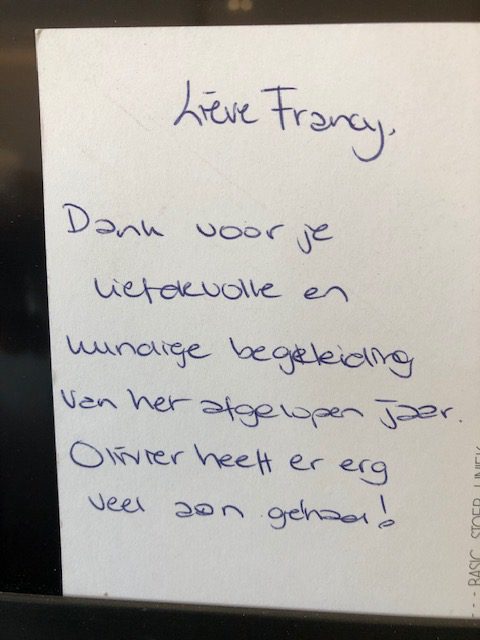 Lieve Francy,
Dank voor je
liefdevolle en
kundige begeleiding
van het afgelopen jaar.
Olivier heeft er erg
veel aan gehad!
BASIC STOER UNIEK